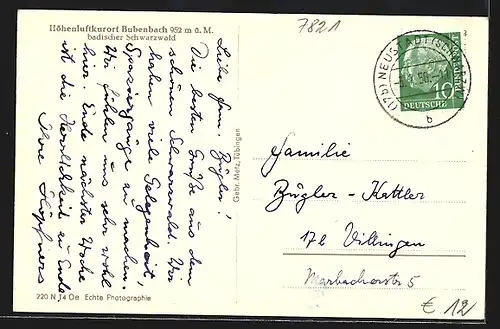 7821
Höhenluftkurort Bubenbach 952 m ü. M.
badischer Schwarzwald
Liebe Fam. Bügler!
Die besten Grüße aus dem
schönen Schwarzwald. Wir
haben viele Gelegenheit,
Spaziergänge zu machen.
Wir fühlen uns sehr wohl
hier. Ende nächster Woche
ist die Herrlichkeit zu Ende
Ihre Höpfners
Gebr. Metz, Tübingen
(17b) NEUSTADT (SCHWARZW)
b
10
DEUTSCHE
Familie
Bügler-Kattler
17b Villingen
Marbacherstr 5
220 N 14 Oe Echte Photographie
€ 12